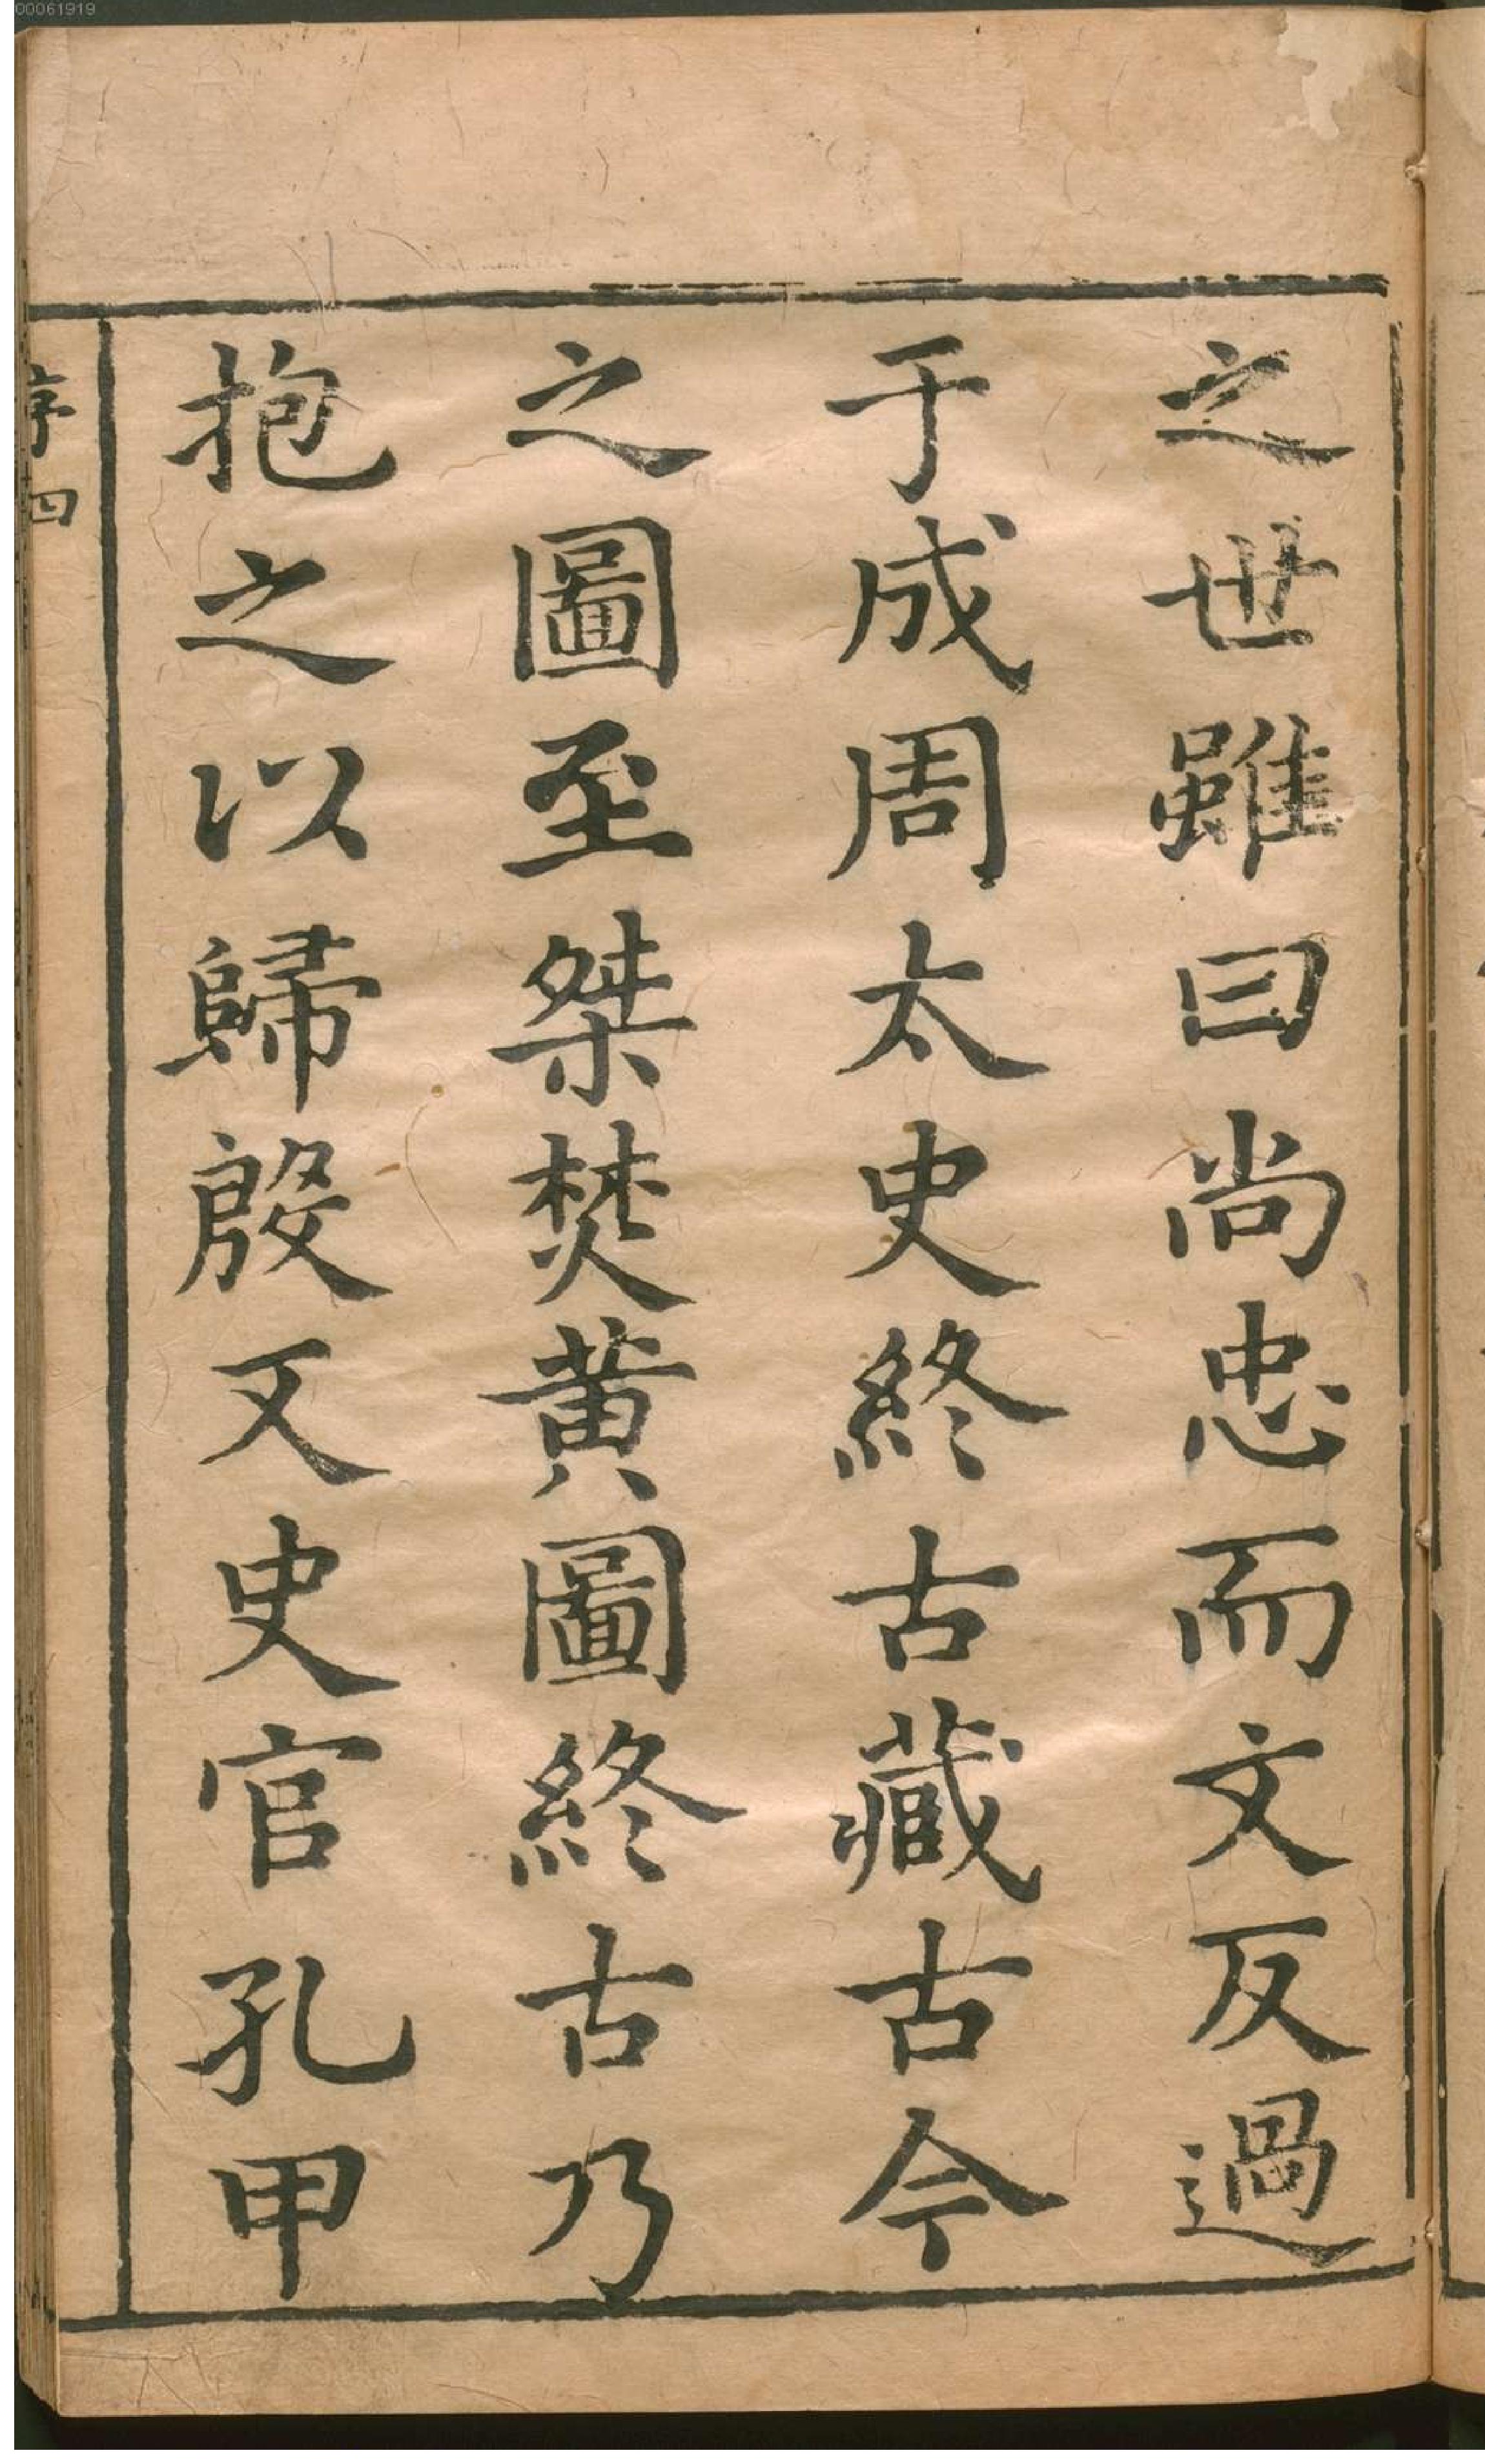 00061919
之世雖曰尚忠而文反過
于成周太史終古藏古今
之圖至桀焚黄圖終古乃
抱之以歸殷又史官孔甲
序四